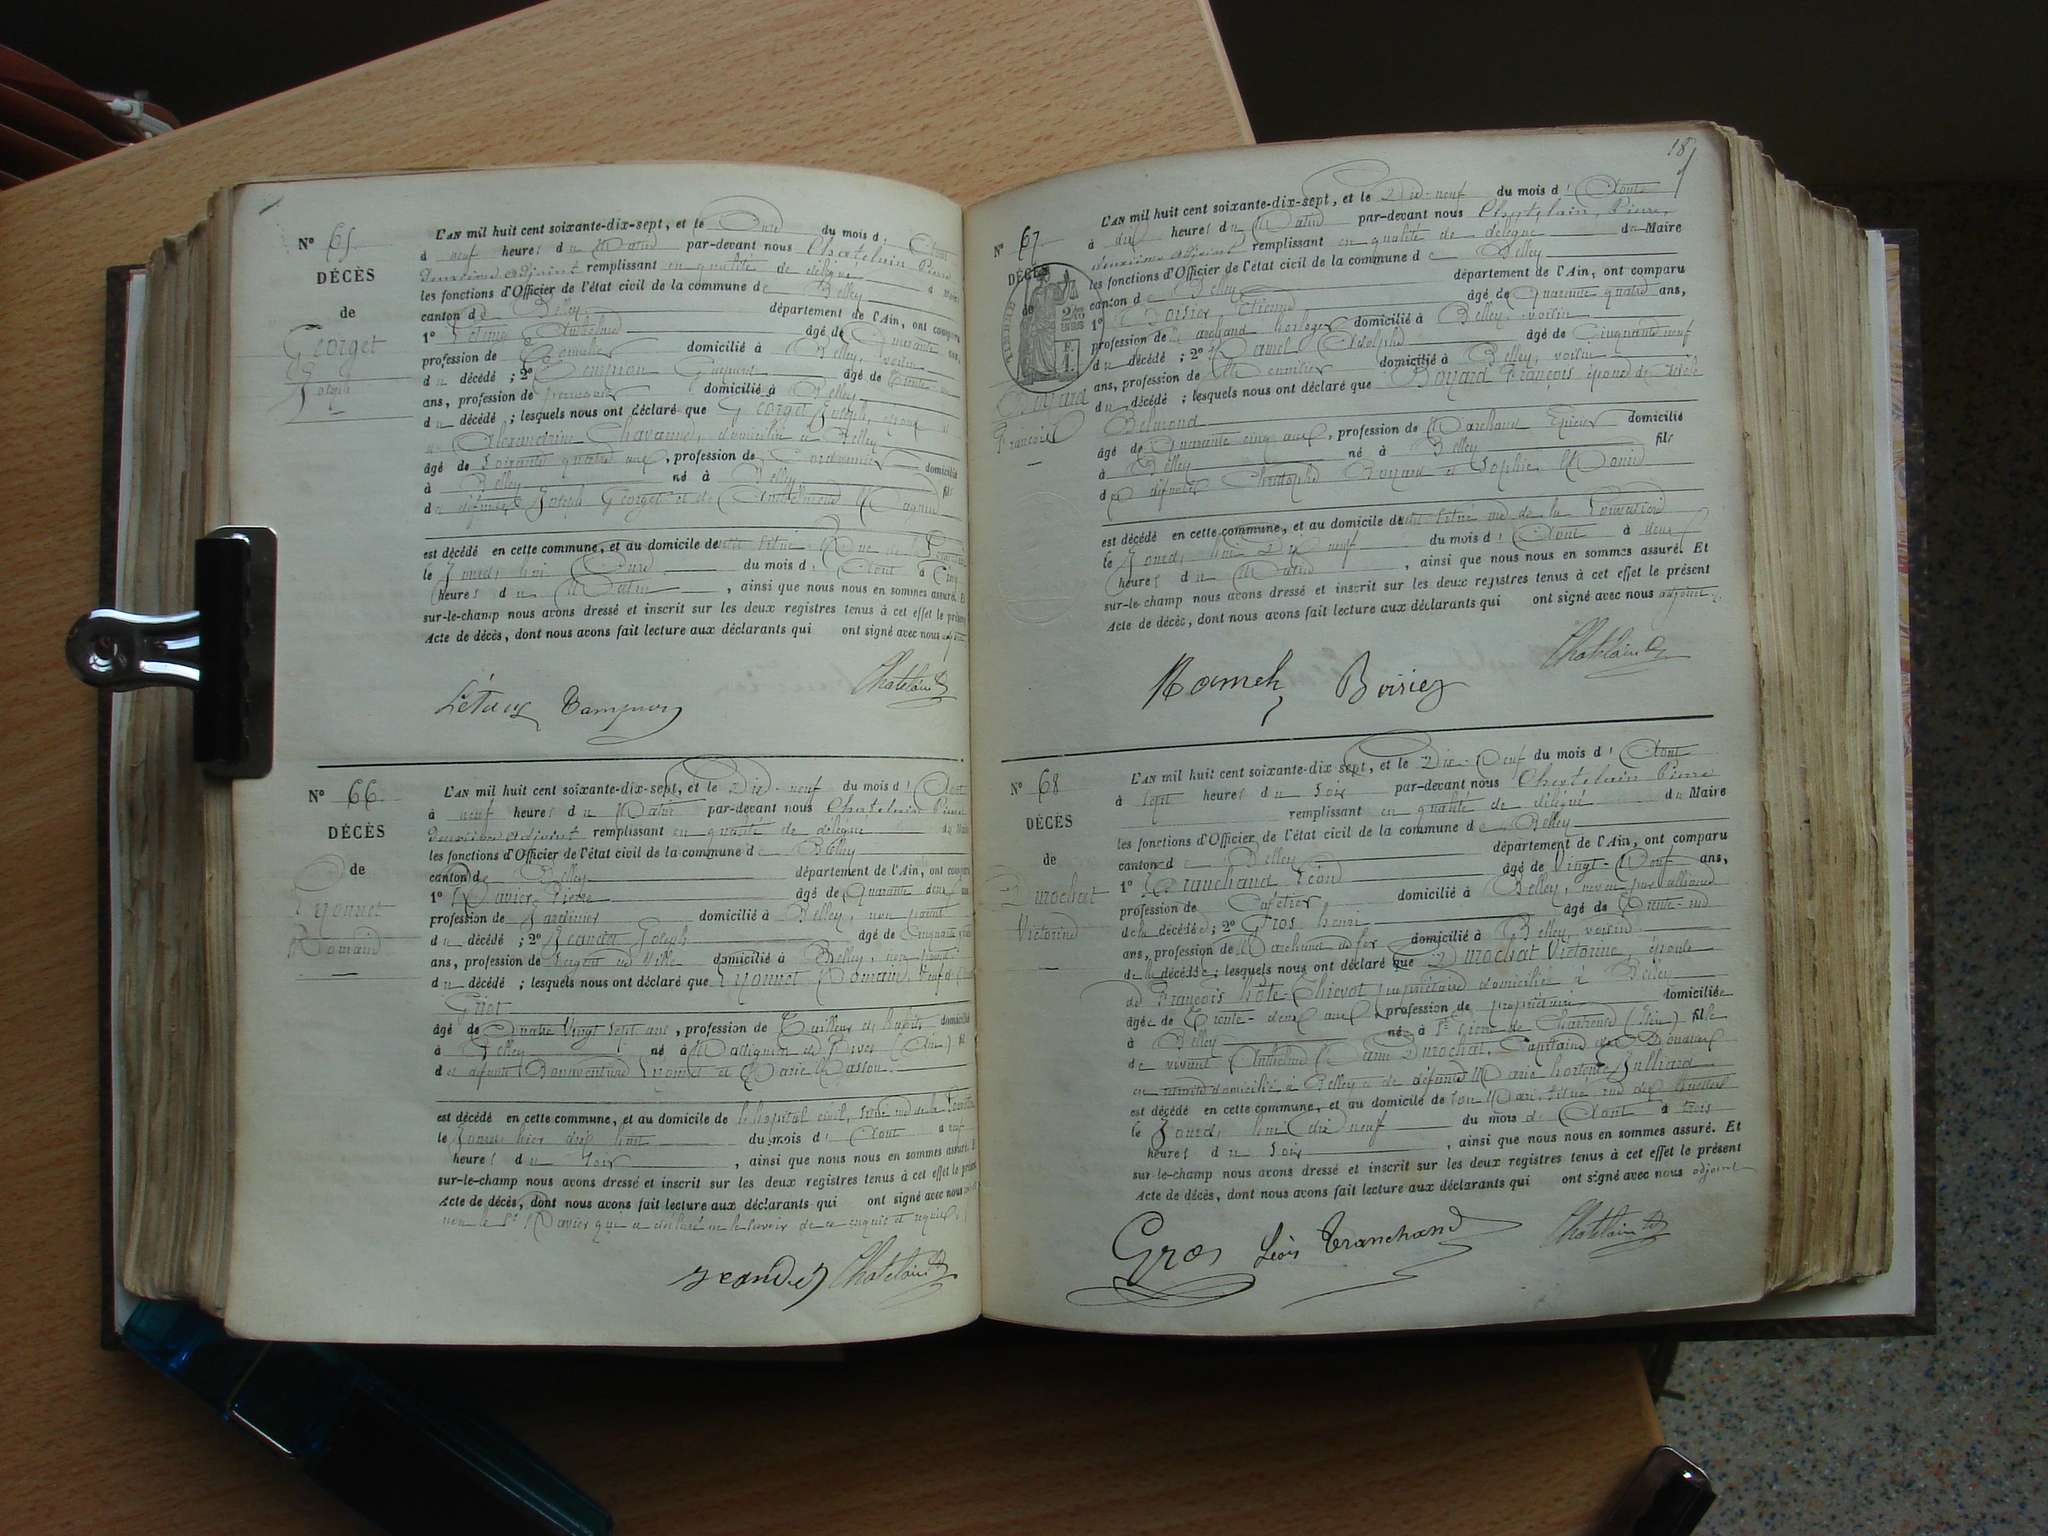 N° 65
DÉCÈS
de
Georget
Joseph
L'AN mil huit cent soixante-dix-sept, et le Onze du mois d' Août
à neuf heures du Matin par-devant nous Chatelain Pierre
deuxième adjoint remplissant en qualité de délégué
les fonctions d'Officier de l'état civil de la commune de Belley
canton de Belley département de l'Ain, ont comparu
1° âgé de Quarante ans,
profession de domicilié à Belley, voisin
du décédé ; 2° âgé de Trente
ans, profession de domicilié à Belley
du décédé ; lesquels nous ont déclaré que Georget Joseph, époux
Alexandrine Chavanne, domicilié à Belley
âgé de Soixante quatre ans, profession de Cordonnier domicilié
à Belley né à Belley fils
de défunts Joseph Georget et de
est décédé en cette commune, et au domicile de situé Rue de la
le Jourd'hui Onze du mois d' Août à Cinq
heures du Matin, ainsi que nous nous en sommes assuré. Et
sur-le-champ nous avons dressé et inscrit sur les deux registres tenus à cet effet le présent
Acte de décès, dont nous avons fait lecture aux déclarants qui ont signé avec nous
Chatelain
N° 66
DÉCÈS
de
Lyonnet
Romain
L'AN mil huit cent soixante-dix-sept, et le Dix-neuf du mois d' Août
à neuf heures du Matin par-devant nous Chatelain Pierre
deuxième adjoint remplissant en qualité de délégué du Maire
les fonctions d'Officier de l'état civil de la commune de Belley
canton de Belley département de l'Ain, ont comparu
1° Davier Pierre âgé de Quarante deux ans,
profession de Jardinier domicilié à Belley, non parent
du décédé ; 2° Jeandet Joseph âgé de Cinquante
ans, profession de Sergent de Ville domicilié à Belley, non parent
du décédé ; lesquels nous ont déclaré que Lyonnet Romain, Veuf de
Griot
âgé de Quatre Vingt Sept ans, profession de Tailleur d'habits domicilié
à Belley né à fils
de défunts Bonaventure Lyonnet et Marie Masson
est décédé en cette commune, et au domicile de l'hôpital civil, situé rue de la
le Jourd'hier dix huit du mois d' Août à neuf
heures du Soir, ainsi que nous nous en sommes assuré. Et
sur-le-champ nous avons dressé et inscrit sur les deux registres tenus à cet effet le présent
Acte de décès, dont nous avons fait lecture aux déclarants qui ont signé avec nous
non le Sr Davier qui a déclaré ne le savoir de ce enquis et requis
Jeandet Chatelain
18
N° 67
DÉCÈS
de
Boyard
François
L'AN mil huit cent soixante-dix-sept, et le Dix-neuf du mois d' Août
à dix heures du Matin par-devant nous Chatelain, Pierre,
deuxième adjoint remplissant en qualité de délégué du Maire
les fonctions d'Officier de l'état civil de la commune de Belley
canton de Belley département de l'Ain, ont comparu
1° Boisier Etienne âgé de Quarante quatre ans,
profession de Marchand horloger domicilié à Belley, voisin
du décédé ; 2° Ramel Adolphe âgé de Cinquante neuf
ans, profession de Menuisier domicilié à Belley, voisin
du décédé ; lesquels nous ont déclaré que Boyard François époux de
Belmond
âgé de Quarante cinq ans, profession de Marchand Epicier domicilié
à Belley né à Belley fils
de défunts Christophe Boyard et Sophie
est décédé en cette commune, et au domicile de situé rue de la
le Jourd'hui Dix neuf du mois d' Août à deux
heures du Matin, ainsi que nous nous en sommes assuré. Et
sur-le-champ nous avons dressé et inscrit sur les deux registres tenus à cet effet le présent
Acte de décès, dont nous avons fait lecture aux déclarants qui ont signé avec nous adjoint
Chatelain
Boisier
N° 68
DÉCÈS
de
Durochat
Victorine
L'AN mil huit cent soixante-dix sept, et le Dix-Neuf du mois d' Août
à sept heures du Soir par-devant nous Chatelain Pierre
remplissant en qualité de délégué du Maire
les fonctions d'Officier de l'état civil de la commune de Belley
canton de Belley département de l'Ain, ont comparu
1° Tranchand Léon âgé de Vingt-Neuf ans,
profession de Cafetier domicilié à Belley, neveu par alliance
de la décédée ; 2° Gros henri âgé de Trente-
ans, profession de Marchand de fer domicilié à Belley, voisin
de la décédée ; lesquels nous ont déclaré que Durochat Victorine, épouse
de François hôte-Chievot propriétaire domiciliée à Belley
âgée de Trente-deux ans profession de propriétaire domiciliée
à Belley née à St Pierre de Chartreuse (Isère) fille
de vivant Durochat, Capitaine de Douanes
en retraite domicilié à Belley et de défunte Marie hortense Julliard
est décédé en cette commune, et au domicile de son Mari, situé rue des
le Jourd'hui dix neuf du mois d' Août à trois
heures du Soir, ainsi que nous nous en sommes assuré. Et
sur-le-champ nous avons dressé et inscrit sur les deux registres tenus à cet effet le présent
Acte de décès, dont nous avons fait lecture aux déclarants qui ont signé avec nous adjoint
Gros Léon Tranchand Chatelain